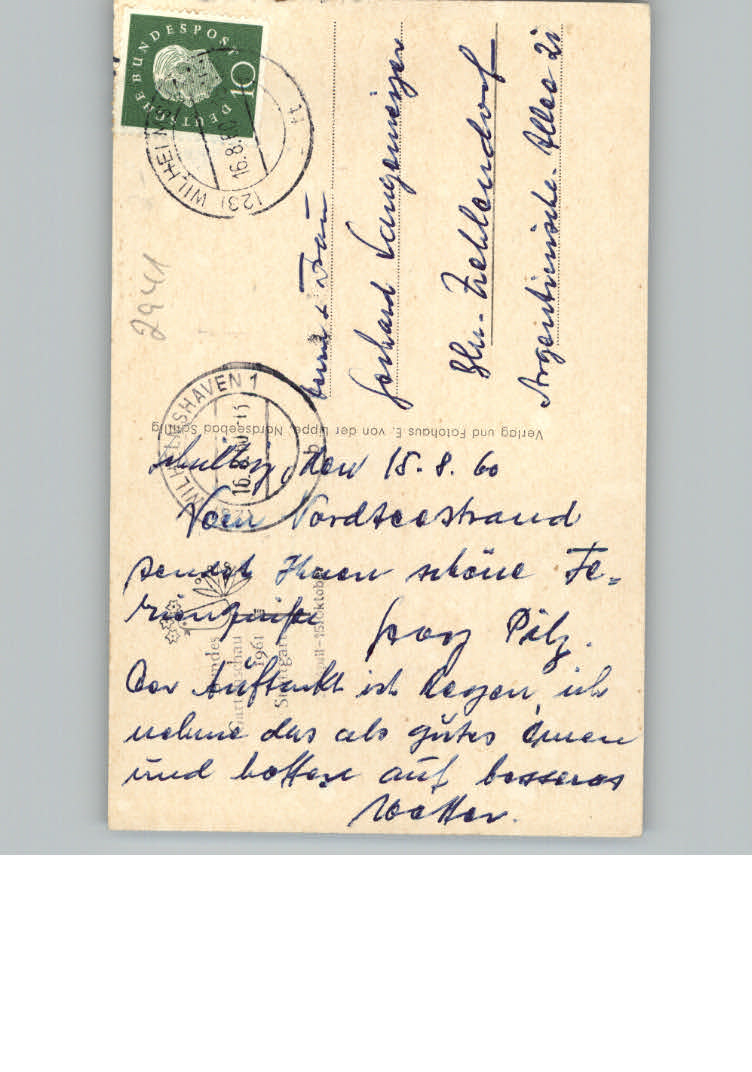 DEUTSCHE BUNDESPOST
10
(23) WILHELMSHAVEN
16.8.60
2941
Herrn & Frau
Gerhard Langemeyer
Bln.-Zehlendorf
Argentinische-Allee 2
Verlag und Fotohaus E. von der Lippe, Nordseebad Schillig
WILHELMSHAVEN 1
16.8.60
Bundes
Gartenschau
1961
Stuttgart
April-15. Oktober
Schillig, den 15.8.60
Vom Nordseestrand
sendet Ihnen schöne Fe=
riengrüße Georg Pilz.
Der Auftakt ist Regen, ich
nehme das als gutes Omen
und hoffe auf besseres
Wetter.